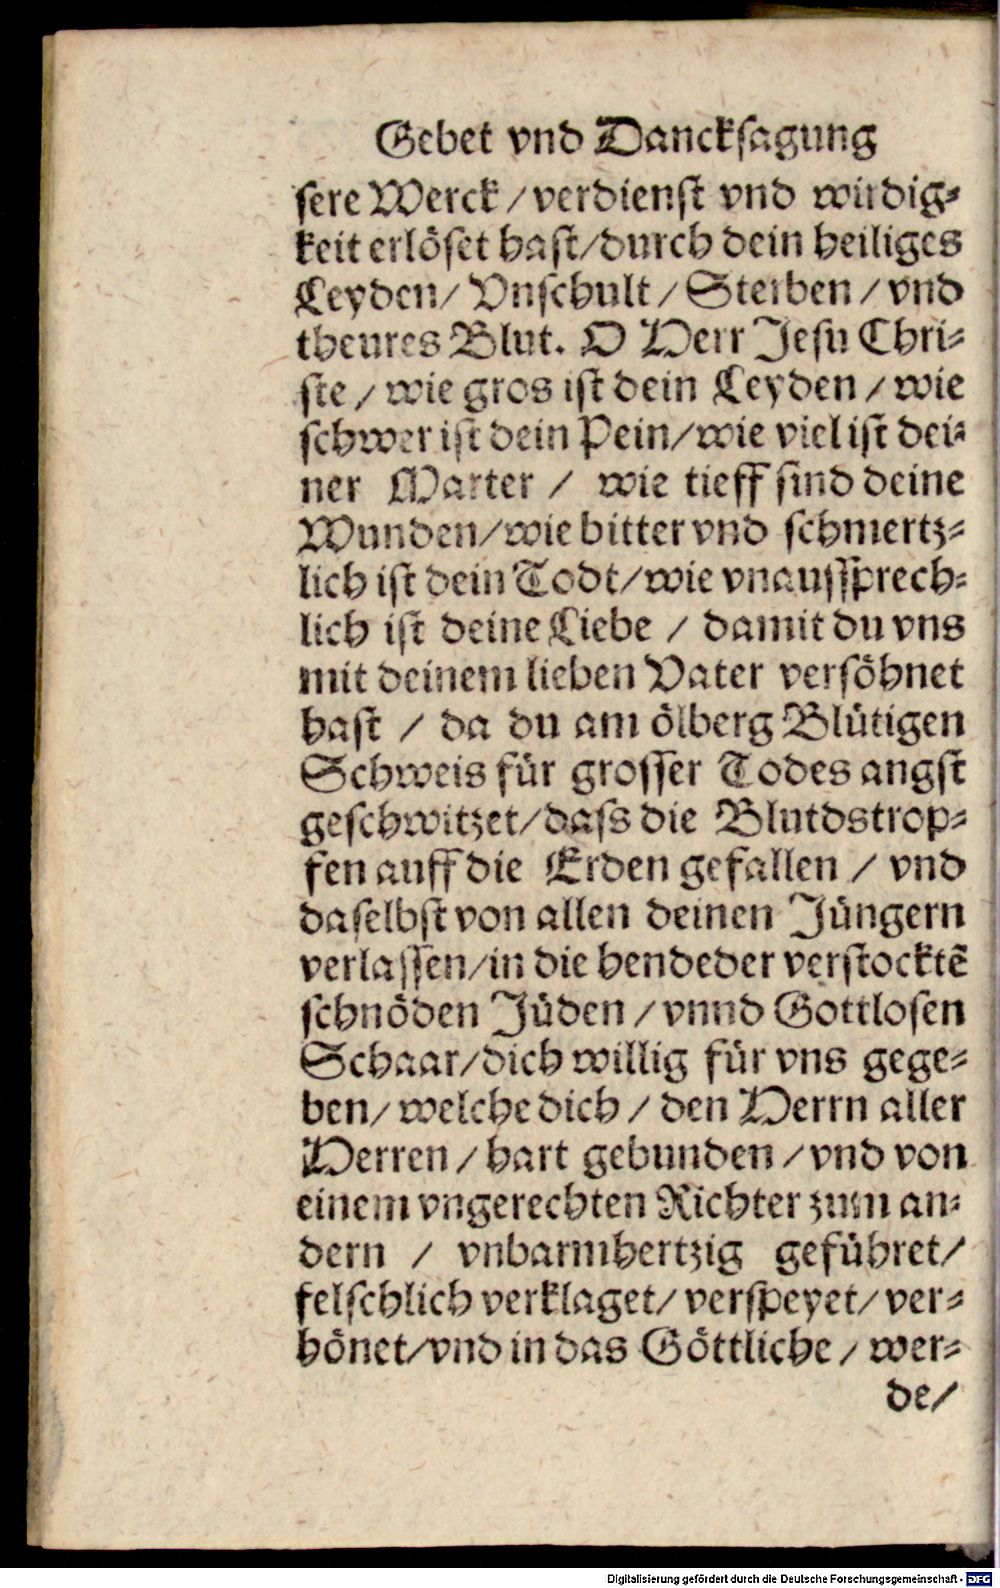 Gebet vnd Dancksagung
sere Werck / verdienst vnd wirdig-
keit erlöset hast/durch dein heiliges
Leyden/ Vnschult / Sterben / vnd
theures Blut. O HErr Jesu Chri-
ste / wie gros ist dein Leyden / wie
schwer ist dein Pein/wie viel ist dei-
ner Marter / wie tieff sind deine
Wunden/wie bitter vnd schmertz-
lich ist dein Todt/wie vnaussprech-
lich ist deine Liebe / damit du vns
mit deinem lieben Vater versöhnet
hast / da du am ölberg Blütigen
Schweis für grosser Todes angst
geschwitzet/dass die Blutdstrop-
fen auff die Erden gefallen / vnd
daselbst von allen deinen Jüngern
verlassen/in die hendeder verstocktē
schnöden Jüden / vnnd Gottlosen
Schaar/dich willig für vns gege-
ben/ welche dich / den HErrn aller
HErren / hart gebunden / vnd von
einem vngerechten Richter zum an-
dern / vnbarmhertzig geführet/
felschlich verklaget/ verspeyet/ ver-
hönet/vnd in das Göttliche / wer-
de/
Digitalisierung gefördert durch die Deutsche Forschungsgemeinschaft - DFG